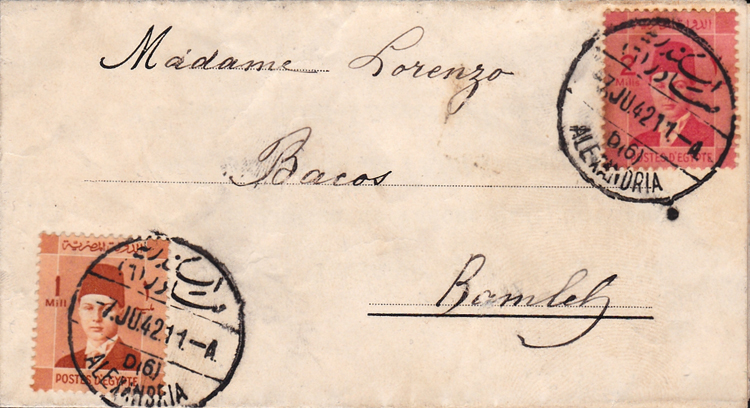 Madame Lorenzo
Bacos
Ramleh
2
Mills
POSTES D'EGYPTE
7.JU.42.11.-A.
D(6)
ALEXANDRIA
البوستة المصرية
1
Mill
POSTES D'EGYPTE
7.JU.42.11.-A
D(6)
ALEXANDRIA